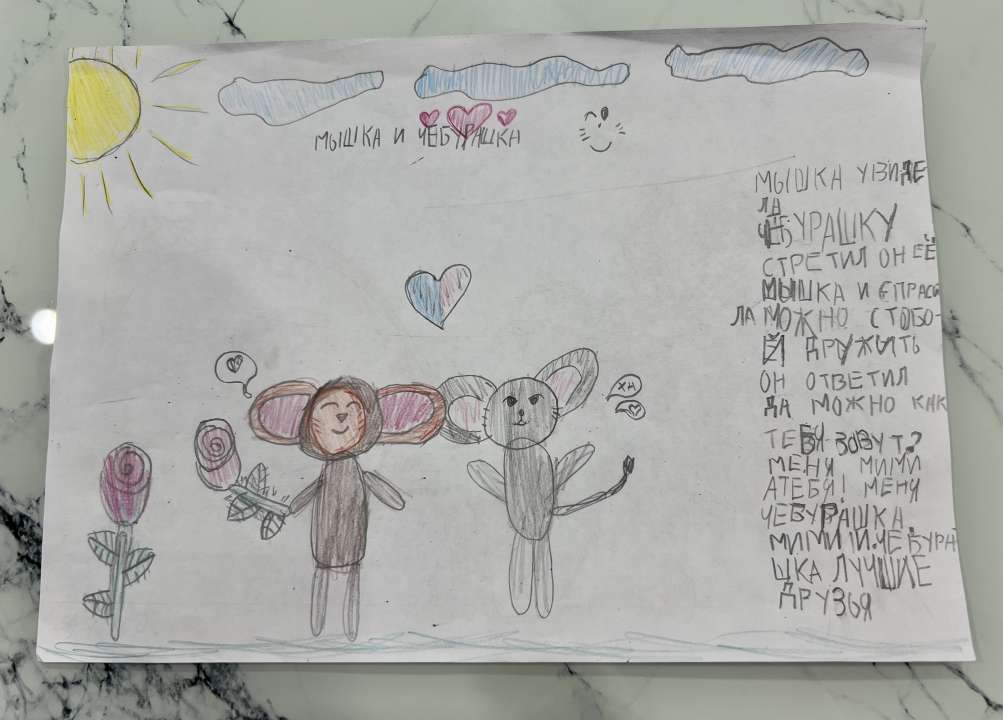 МЫШКА И ЧЕБУРАШКА
ХА
МЫШКА УВИДЕ
ЛА
ЧЕБУРАШКУ
СТРЕТИЛ ОН ЕЁ
МЫШКА И СПРАСИ
ЛА МОЖНО СТОБО-
Й ДРУЖЫТЬ
ОН ОТВЕТИЛ
ДА МОЖНО КАК
ТЕБЯ ЗОВУТ?
МЕНЯ МИМИ
АТЕБЯ! МЕНЯ
ЧЕБУРАШКА
МИМИ И ЧЕБУРА
ШКА ЛУЧШИЕ
ДРУЗЬЯ